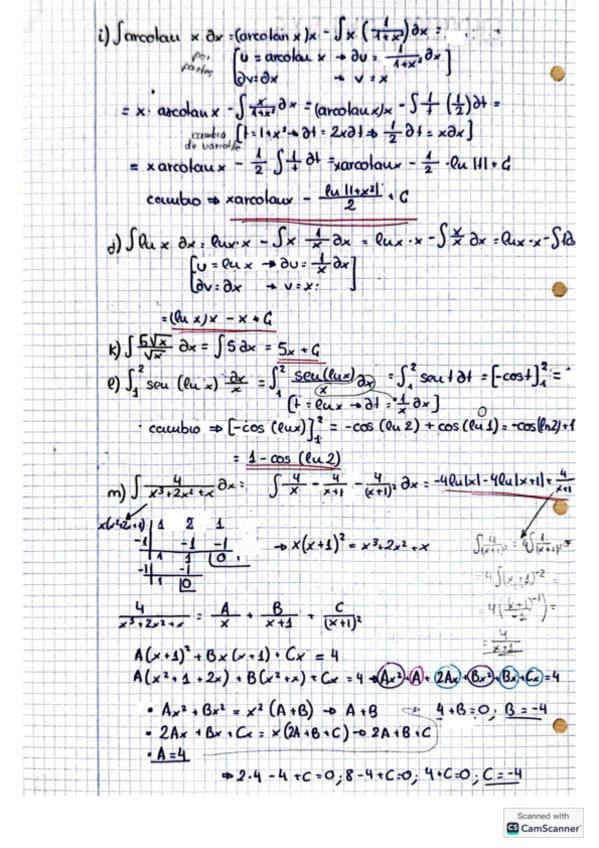 i) ∫arcotan x ∂x = (arcotan x)x - ∫x (1/1+x²)∂x =
por partes [u = arcotan x → ∂u = 1/1+x² ∂x
∂v = ∂x → v = x]
= x · arcotan x - ∫x/1+x² ∂x = (arcotan x)x - ∫1/t (1/2)∂t =
cambio de variable [t = 1+x² → ∂t = 2x∂t ⇒ 1/2 ∂t = x∂x]
= x arcotan x - 1/2 ∫1/t ∂t = x arcotan x - 1/2 · ln|t| + C
cambio ⇒ x arcotan x - ln|1+x²|/2 + C
j) ∫ln x ∂x = ln x · x - ∫x 1/x ∂x = ln x · x - ∫x/x ∂x = ln x · x - ∫1∂
[u = ln x → ∂u = 1/x ∂x
∂v = ∂x → v = x]
= (ln x)x - x + C
k) ∫5√x/√x ∂x = ∫5 ∂x = 5x + C
l) ∫₁² sen (ln x) ∂x/x = ∫₁² sen(ln x)/x ∂x = ∫₁² sen t ∂t = [-cos t]₁² =
[t = ln x → ∂t = 1/x ∂x]
cambio ⇒ [-cos (ln x)]₁² = -cos (ln 2) + cos (ln 1) = -cos(ln2)+1
0
= 1 - cos (ln 2)
m) ∫ 4/x³+2x²+x ∂x = ∫ 4/x - 4/x+1 - 4/(x+1)² ∂x = -4ln|x| - 4ln|x+1| + 4/x+1
x(x²+2x+1) 1 2 1
-1 -1 -1
1 1 0 → x(x+1)² = x³+2x²+x
-1 -1
1 0
∫4/(x+1)² = 4∫1/(x+1)² =
= 4∫(x+1)⁻² =
= 4((x+1)⁻¹/-1) =
= 4/x+1
4/x³+2x²+x = A/x + B/x+1 + C/(x+1)²
A(x+1)² + Bx(x+1) + Cx = 4
A(x²+1+2x) + B(x²+x) + Cx = 4 → Ax² + A + 2Ax + Bx² + Bx + Cx = 4
• Ax² + Bx² = x² (A+B) → A+B 4+B=0; B = -4
• 2Ax + Bx + Cx = x(2A+B+C) → 2A+B+C
• A=4
⇒ 2·4 - 4 + C = 0; 8-4+C=0; 4+C=0; C = -4
Scanned with
CS CamScanner